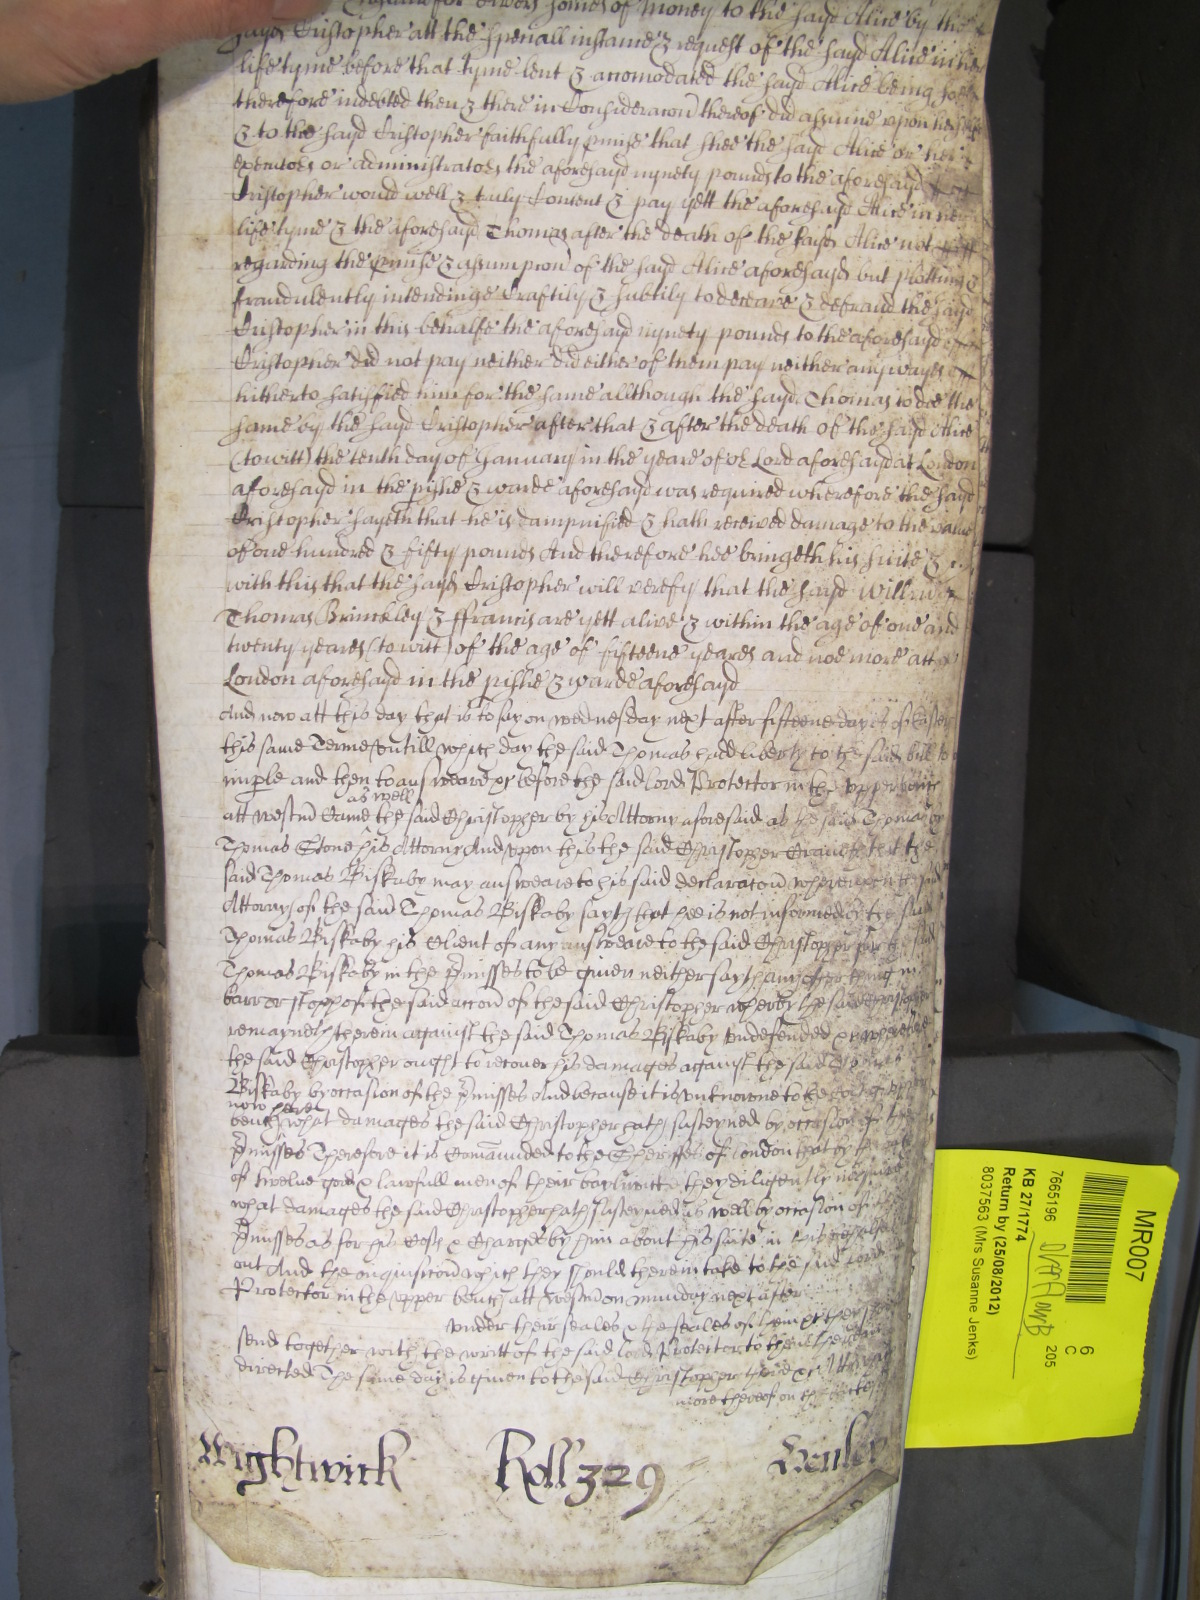 for divers somes of money to the sayd Alice by the
sayd Cristopher att the speciall instance & request of the sayd Alice in her
life tyme before that tyme lent & accomodated the sayd Alice being soe
therefore indebted then & there in Consideracon thereof did assume upon her selfe
& to the sayd Cristopher faithfully pmise that shee the sayd Alice or her
executors or administrators the aforesayd nynety pounds to the aforesayd
Cristopher would well & truly Content & pay yett the aforesayd Alice in her
life tyme & the aforesayd Thomas after the death of the sayd Alice not
regarding the pmise & assumpcon of the sayd Alice aforesayd but plotting &
fraudulently intendinge Craftily & subtily to deceave & defraud the sayd
Cristopher in this behalfe the aforesayd nynety pounds to the aforesayd
Cristopher did not pay neither did either of them pay neither anywayes
hitherto satisfied him for the same allthough the sayd Thomas to doe the
same by the sayd Cristopher after that & after the death of the sayd Alice
(to witt) the tenth day of January in the yeare of or Lord aforesayd at London
aforesayd in the pishe & warde aforesayd was required wherefore the sayd
Cristopher sayeth that he is dampnified & hath received damage to the value
of one hundred & fifty pounds And therefore hee bringeth his suite &
with this that the sayd Cristopher will verefy that the sayd Willm
Thomas Brinckley & ffrancis are yett alive & within the age of one and
twenty yeares (to witt) of the age of fifteene yeares and noe more att
London aforesayd in the pishe & warde aforesayd
And now att this day that is to say on wednesday next after fifteene dayes of Easter
this same Terme untill which day the said Thomas hadd liberty to the said bill to
imparle and then to answeare &c before the said Lord Protector in the upper bench
as well
att westm Came the said Christopher by his Attorny aforesaid as the said Thomas by
Thomas Stone his Attorny And upon this the said Christopher Craveth that the
said Thomas Biskaby may answeare to his said declaracon whereupon the said
Attorny of the said Thomas Biskaby sayth that hee is not informed by the said
Thomas Biskaby his Client of any answeare to the said Christopher for the said
Thomas Biskaby in the pmisses to be given neither sayth any other thing in
barr or stopp of the said accon of the said Christopher wherby the said Christopher
remayneth therein against the said Thomas Biskaby undefended &c wherefore
the said Christopher ought to recover his damages against the said Thomas
Biskaby by occasion of the pmisses And because it is unknowne to the Court of upper
now here
bench what damages the said Christopher hath susteyned by occasion of the
pmisses Therefore it is Comaunded to the Sheriffes of London that by the oath
of twelve good & lawfull men of their bayliwick they diligently inquire
what damages the said Christopher hath susteyned as well by occasion of the
pmisses as for his Costs & Charges by him about his suite in this behalfe
out And the inquisicon which they should therein take to the said Lord
Protector in the upper bench att Westm on munday next after
under their seales & the seales of them &c they
send together with the writt of the said Lord Protector to them therein
directed The same day is given to the said Christopher there &c Att
more thereof on the backe
Wightwick Roll 329
MR007
6
C
205
7665196
KB 27/1774
Return by (25/08/2012)
8037563 (Mrs Susanne Jenks)